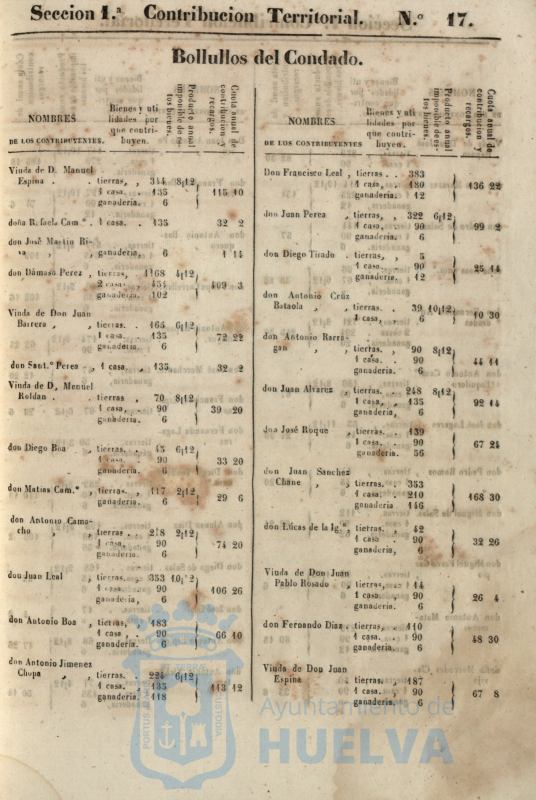 Seccion 1.ª Contribucion Territorial. N.º 17.
Bollullos del Condado.
NOMBRES
DE LOS CONTRIBUYENTES.
Bienes y uti
lidades por
que contri-
buyen.
Producto anual
imponible de es-
tos bienes.
Cuota anual de
contribucion y
recargos.
Viuda de D. Manuel
Espina . . tierras, , 344 8|12
1 casa. . 135 115 10
ganaderia. 6
doña R. faela Cam.ª . 1 casa. . 135 32 2
don José Martin Ri-
va , , ganaderia, 6 1 14
don Dámaso Perez , tierras, 1168 4|12
2 casa. . 454 409 3
ganaderia. 102
Viuda de Don Juan
Barrera , , tierras. . 165 6|12
1 casa. . 135 72 22
ganaderia. 6
don Sant.º Perea , 1 casa . 135 32 2
Viuda de D, Menuel
Roldan . tierras 70 8|12
1 casa, . 90 39 20
ganaderia. 6
don Diego Boa , tierras. . 45 6|12
1 casa. . 90 33 20
ganaderia. 6
don Matias Cam.º , tierras. , 117 2|12
ganaderia. 6 29 6
don Antonio Cama-
cho , , tierras . . 218 2|12
1 casa. 90 74 20
ganaderia. 6
don Juan Leal , tierras. . 353 10|12
1 casa. . 90 106 26
ganaderia, 6
don Antonio Boa , tierras, 183
1 casa , . 90 66 10
ganaderia. 6
don Antonio Jimenez
Chopa , , tierras. . 224 6|12
1 casa. . 135 113 12
ganaderia. 118
NOMBRES
DE LOS CONTRIBUYENTES
Bienes y uti
lidades por
que contri-
buyen.
Producto anual
imponible de es-
tos bienes.
Cuota anual de
contribucion y
recargos.
Don Francisco Leal , tierras . . 383
1 casa, . 180 136 22
ganaderia. 12
don Juan Perea , tierras, , 322 6|12
1 casa. 90 99 2
ganaderia. 6
don Diego Tirado . tierras, , 5
1 casa. . 90 25 14
ganaderia. 12
don Antonio Crúz
Bataola , , tierras . 39 10|12
1 casa, 6 10 30
don Antonio Barra-
gan , , tierras. . 90 8|12
1 casa. . 90 44 11
ganaderia. 6
don Juan Alvarez , tierras. . 248 8|12
1 casa, , 135 92 14
ganaderia, 6
don José Roque , tierras. . 139
1 casa. . 90 67 24
ganaderia. 56
don Juan Sanchez
Chane , , tierras. . 353
1 casa. . 210 168 30
ganaderia 146
don Lúcas de la Ig.ª, tierras. . 42
1 casa. . 90 32 26
ganaderia, 6
Viuda de Don Juan
Pablo Rosado . tierras, , 14
1 casa. . 90 26 4
ganaderia. 6
don Fernando Diaz . tierras. . 110
1 casa. . 90 48 30
ganaderia. 6
Viuda de Don Juan
Espina . tierras, , 187
1 casa, , 90 67 8
ganaderia. 6
PORTUS MARIS
ET TERRÆ
CUSTODIA
Ayuntamiento de
HUELVA